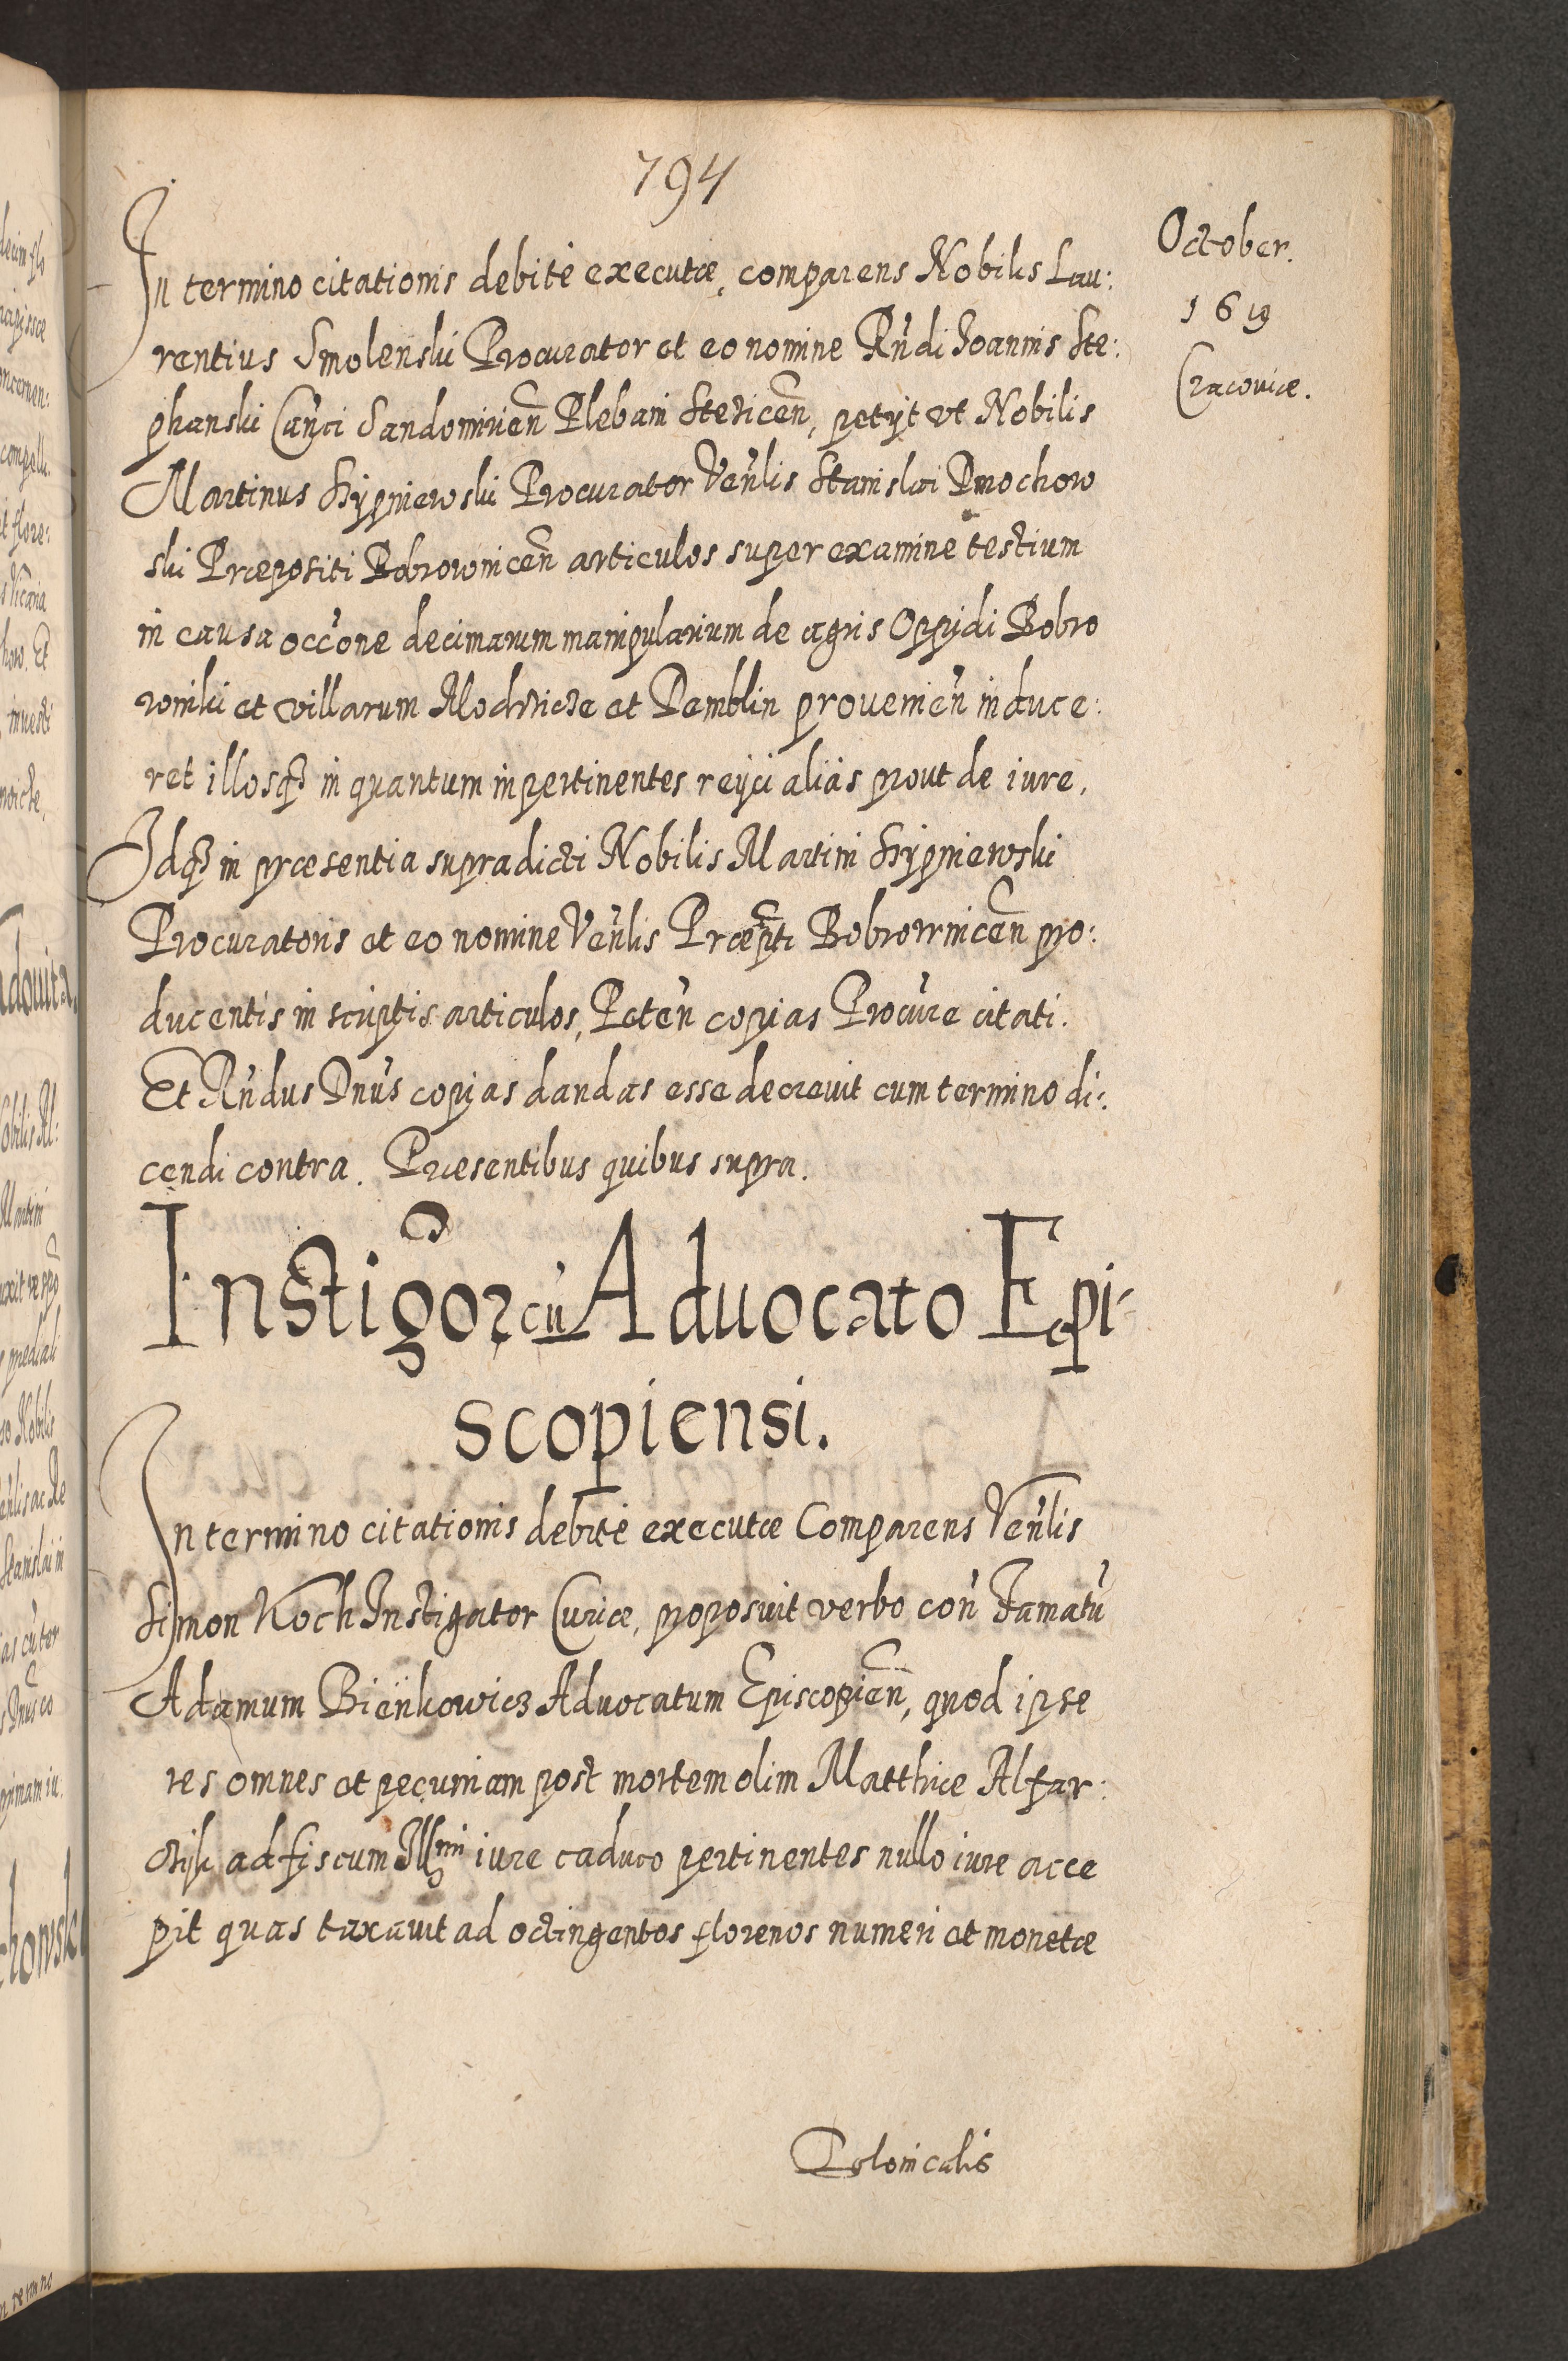 794
October.
1619
Cracoviæ.
In termino citationis debitè executæ, comparens Nobilis Lau:
rentius Smolenski Procurator et eo nomine Rńdi Joannis Ste:
phanski Cańci Sandomirień Plebani Steziceń, petijt vt Nobilis
Martinus Krzypniewski Procurator Veńlis Stanislai Dmochow
ski Præpositi Bobrowniceń articulos super examine testium
in causa occóne decimarum manipularium de agris Oppidi Bobro
wniki et villarum Modrzicze et Demblin provenień induce:
ret illosq3 in quantum inpertinentes reijci aliàs prout de iure.
Idq3 in præsentia supradicti Nobilis Martini Krzypniewski
Procuratoris et eo nomine Veńlis Præpti Bobrowniceń pro:
ducentis in scriptis articulos, Peteń copias Procúre citati.
Et Rńdus Dnús copias dandas esse decrevit cum termino di:
cendi contra. Præsentibus quibus supra.
Instigor cú Advocato Epi-
scopiensi.
In termino citationis debitè executæ Comparens Veńlis
Simon Koch Instigator Curiæ, proposuit verbo coń Famatú
Adamum Bieńkowicz Advocatum Episcopień, quod ipse
res omnes et pecuniam post mortem olim Matthiæ Alfar:
czijk ad fiscum Illmi iure caduco pertinentes nullo iure acce
pit quas taxavit ad octingentos florenos numeri et monetæ
Polonicalis